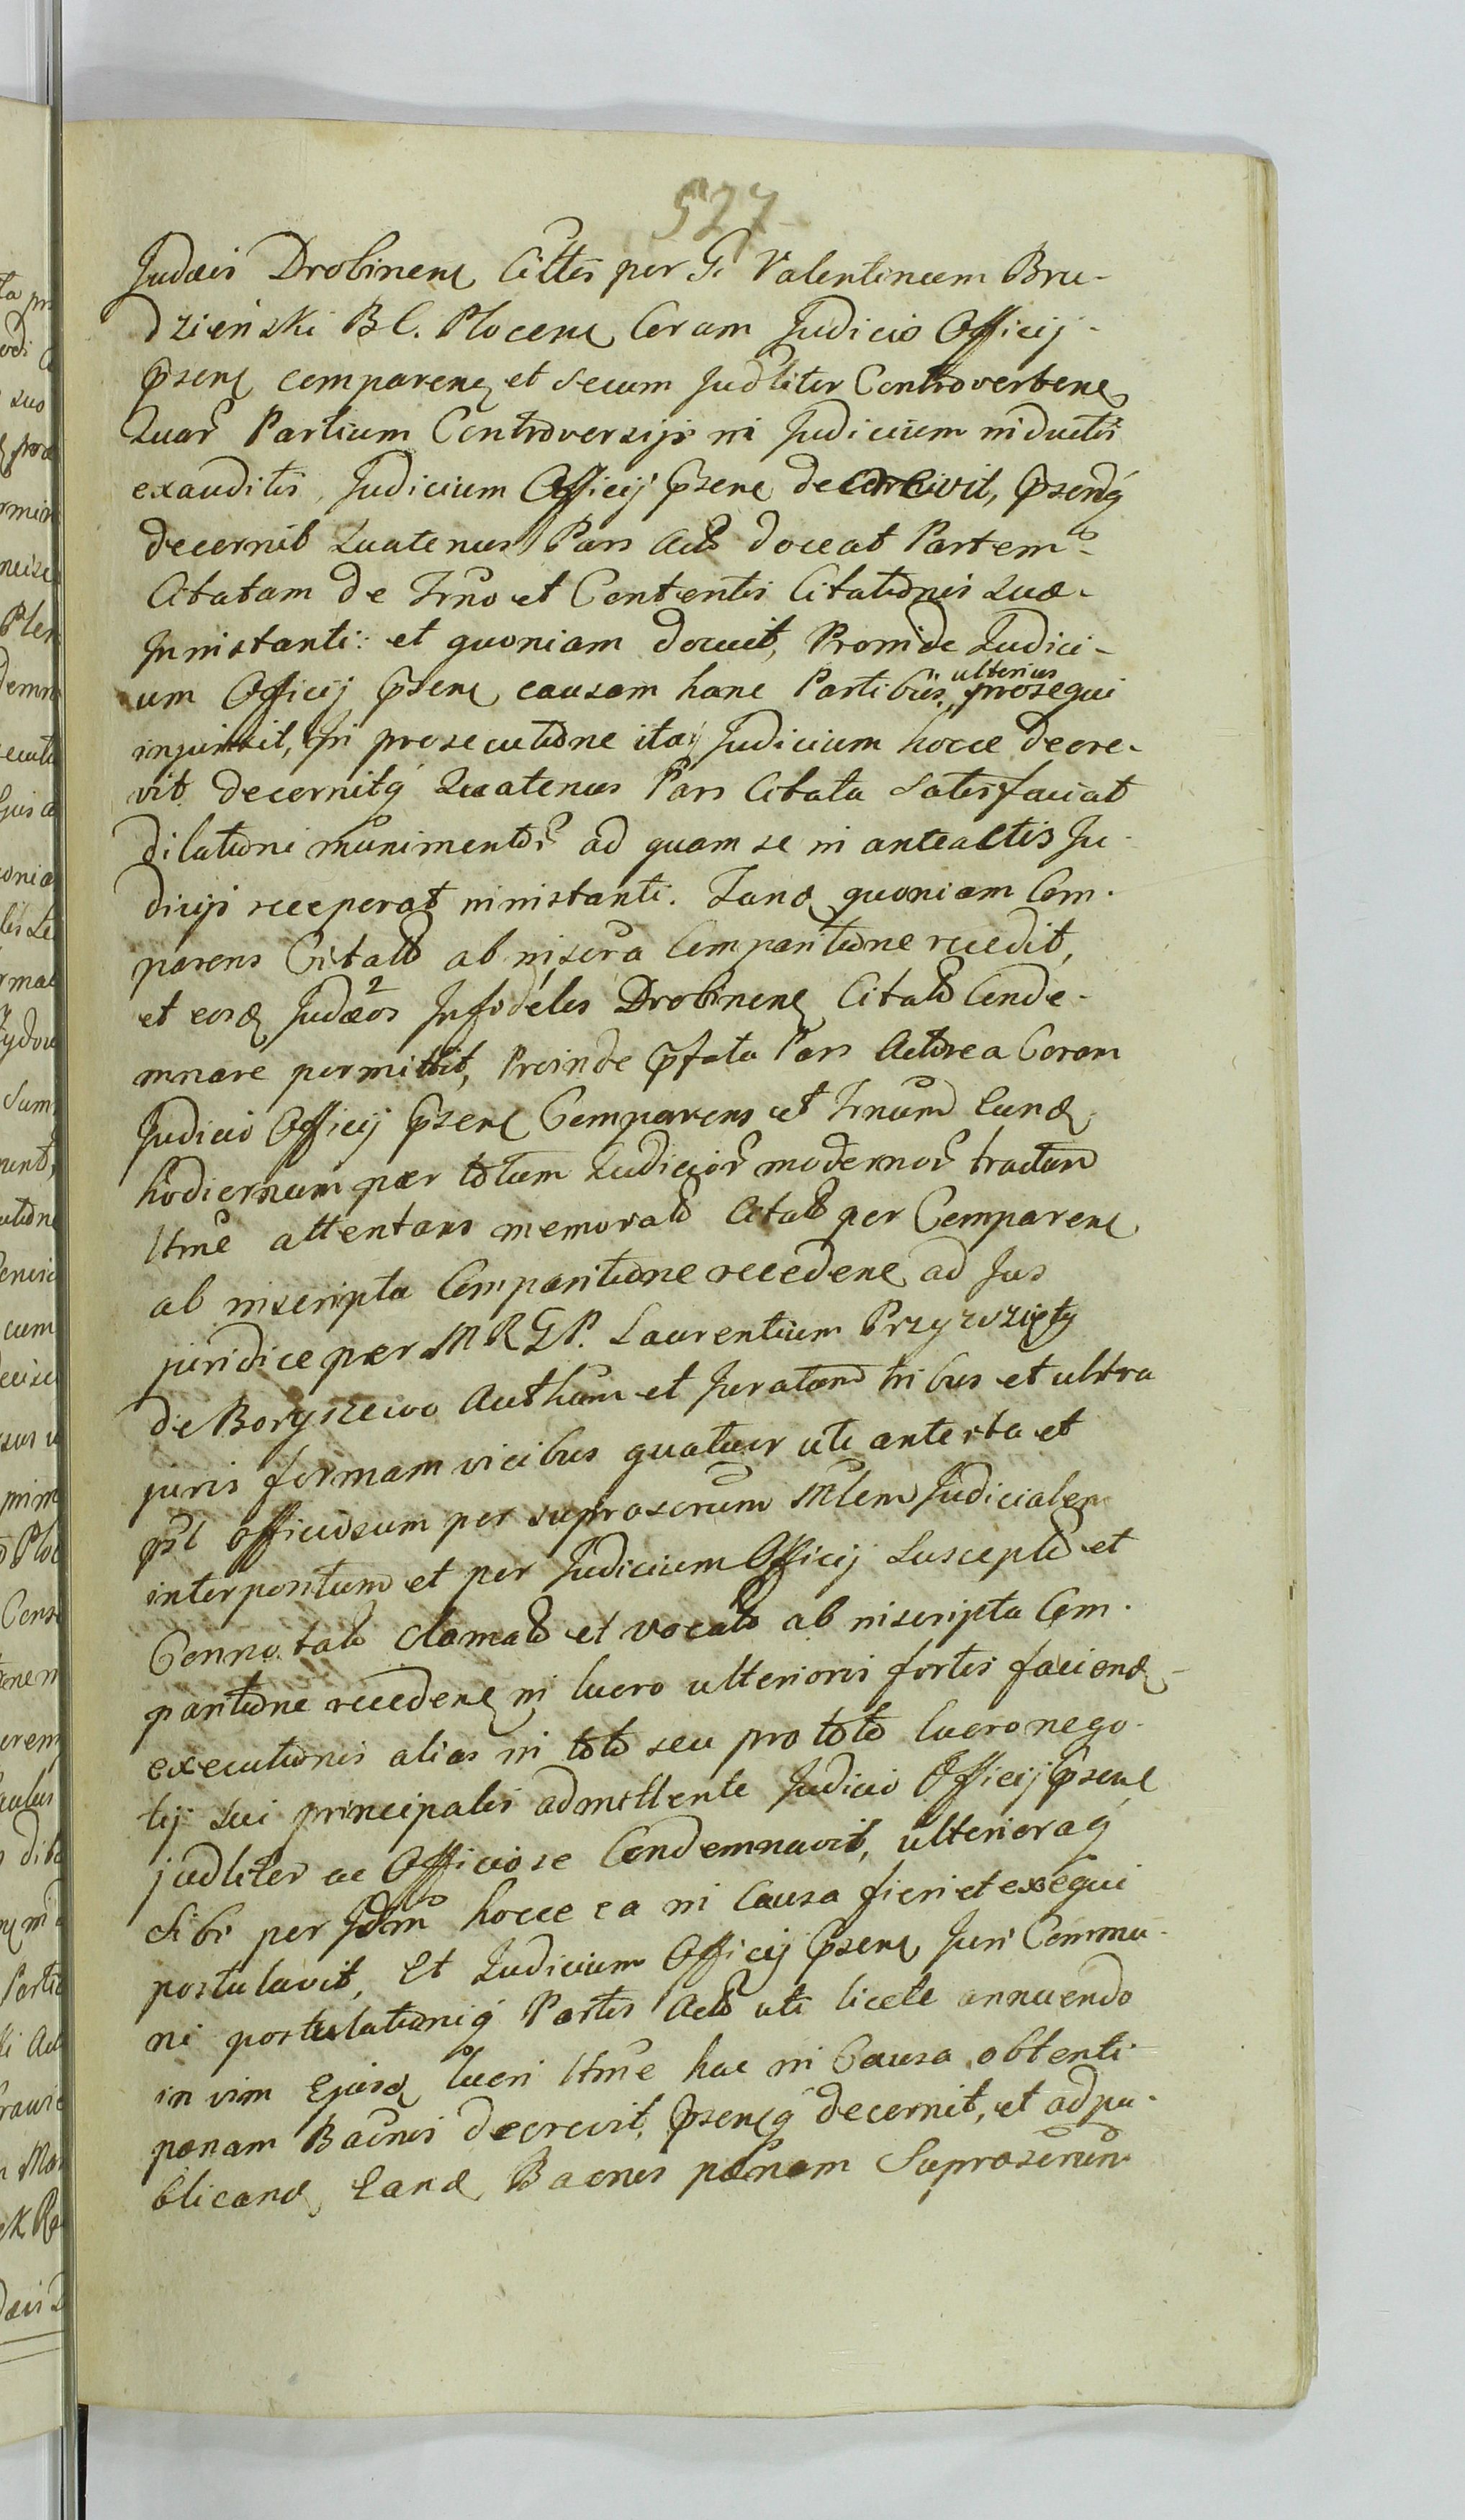 527
Judæis Drobinen Cittis per G. Valentinum Bru-
dzieński B C. Plocen Coram Judicio Officij
pnsen comparen et secum Judliter Controverten
Quar Partium Controversijs in Judicium inductis
exauditis, Judicium Officij Psen decrevit, Psenq
decernit Quatenus Pars Acto doceat Partem
Citatam de Trno et Contentis Citationis suæ
Ininstanti: et quoniam docuit, Proinde Judici-
um Officij Psen causam hanc Partibus ulterius prosequi
injunxit, In prosecutione itaq Judicium hocce decre-
vit decernitq Quatenus Pars Citata satisfaciat
dilationi munimentor ad quam se in anteactis Ju-
dicijs receperat ininstanti. Tand quoniam Com-
parens Citato ab inscra Comparitione recedit,
et eosd Judæos Infideles Drobinen Citato Conde-
mnare permittit, Proinde Pfata Pars Actorea Coram
Judicio Officij Psen Comparens et Trnum Eund
hodiernum per totum Judicior modernor tractum
Ltme attentans memorato Citato per Comparen
ab inscripta Comparitione receden ad Jus
juridice per M R G P. Laurentium Przyrzięty
de Boryszewo Authum et Juratum tribus et ultra
juris formam vicibus quatuor uti anterta et
psl officiosum per suprascrum Mlem Judicialem
interpositum et per Judicium Officij Suscepto et
Connotato clamato et vocato ab inscripta Com-
paritione receden in lucro ulterioris fortis faciend
executionis alias in toto seu pro toto lucro nego-
tij sui principalis admittente Judicio Officij Psen
judliter ac Officiose Condemnavit, ulterioraq
sibi per Jdm hocce ea in Causa fieri et exequi
postulavit, Et Judicium Officij Psen Juri Commu-
ni postulationiq Partis Acto uti licitæ annuendo
in vim Ejusd lucri Ltme hac in Causa obtenti
pœnam Bacnis decrevit, Psenq decernit, et ad pu-
blicand Eand Bacnis pœnam Suprascrum